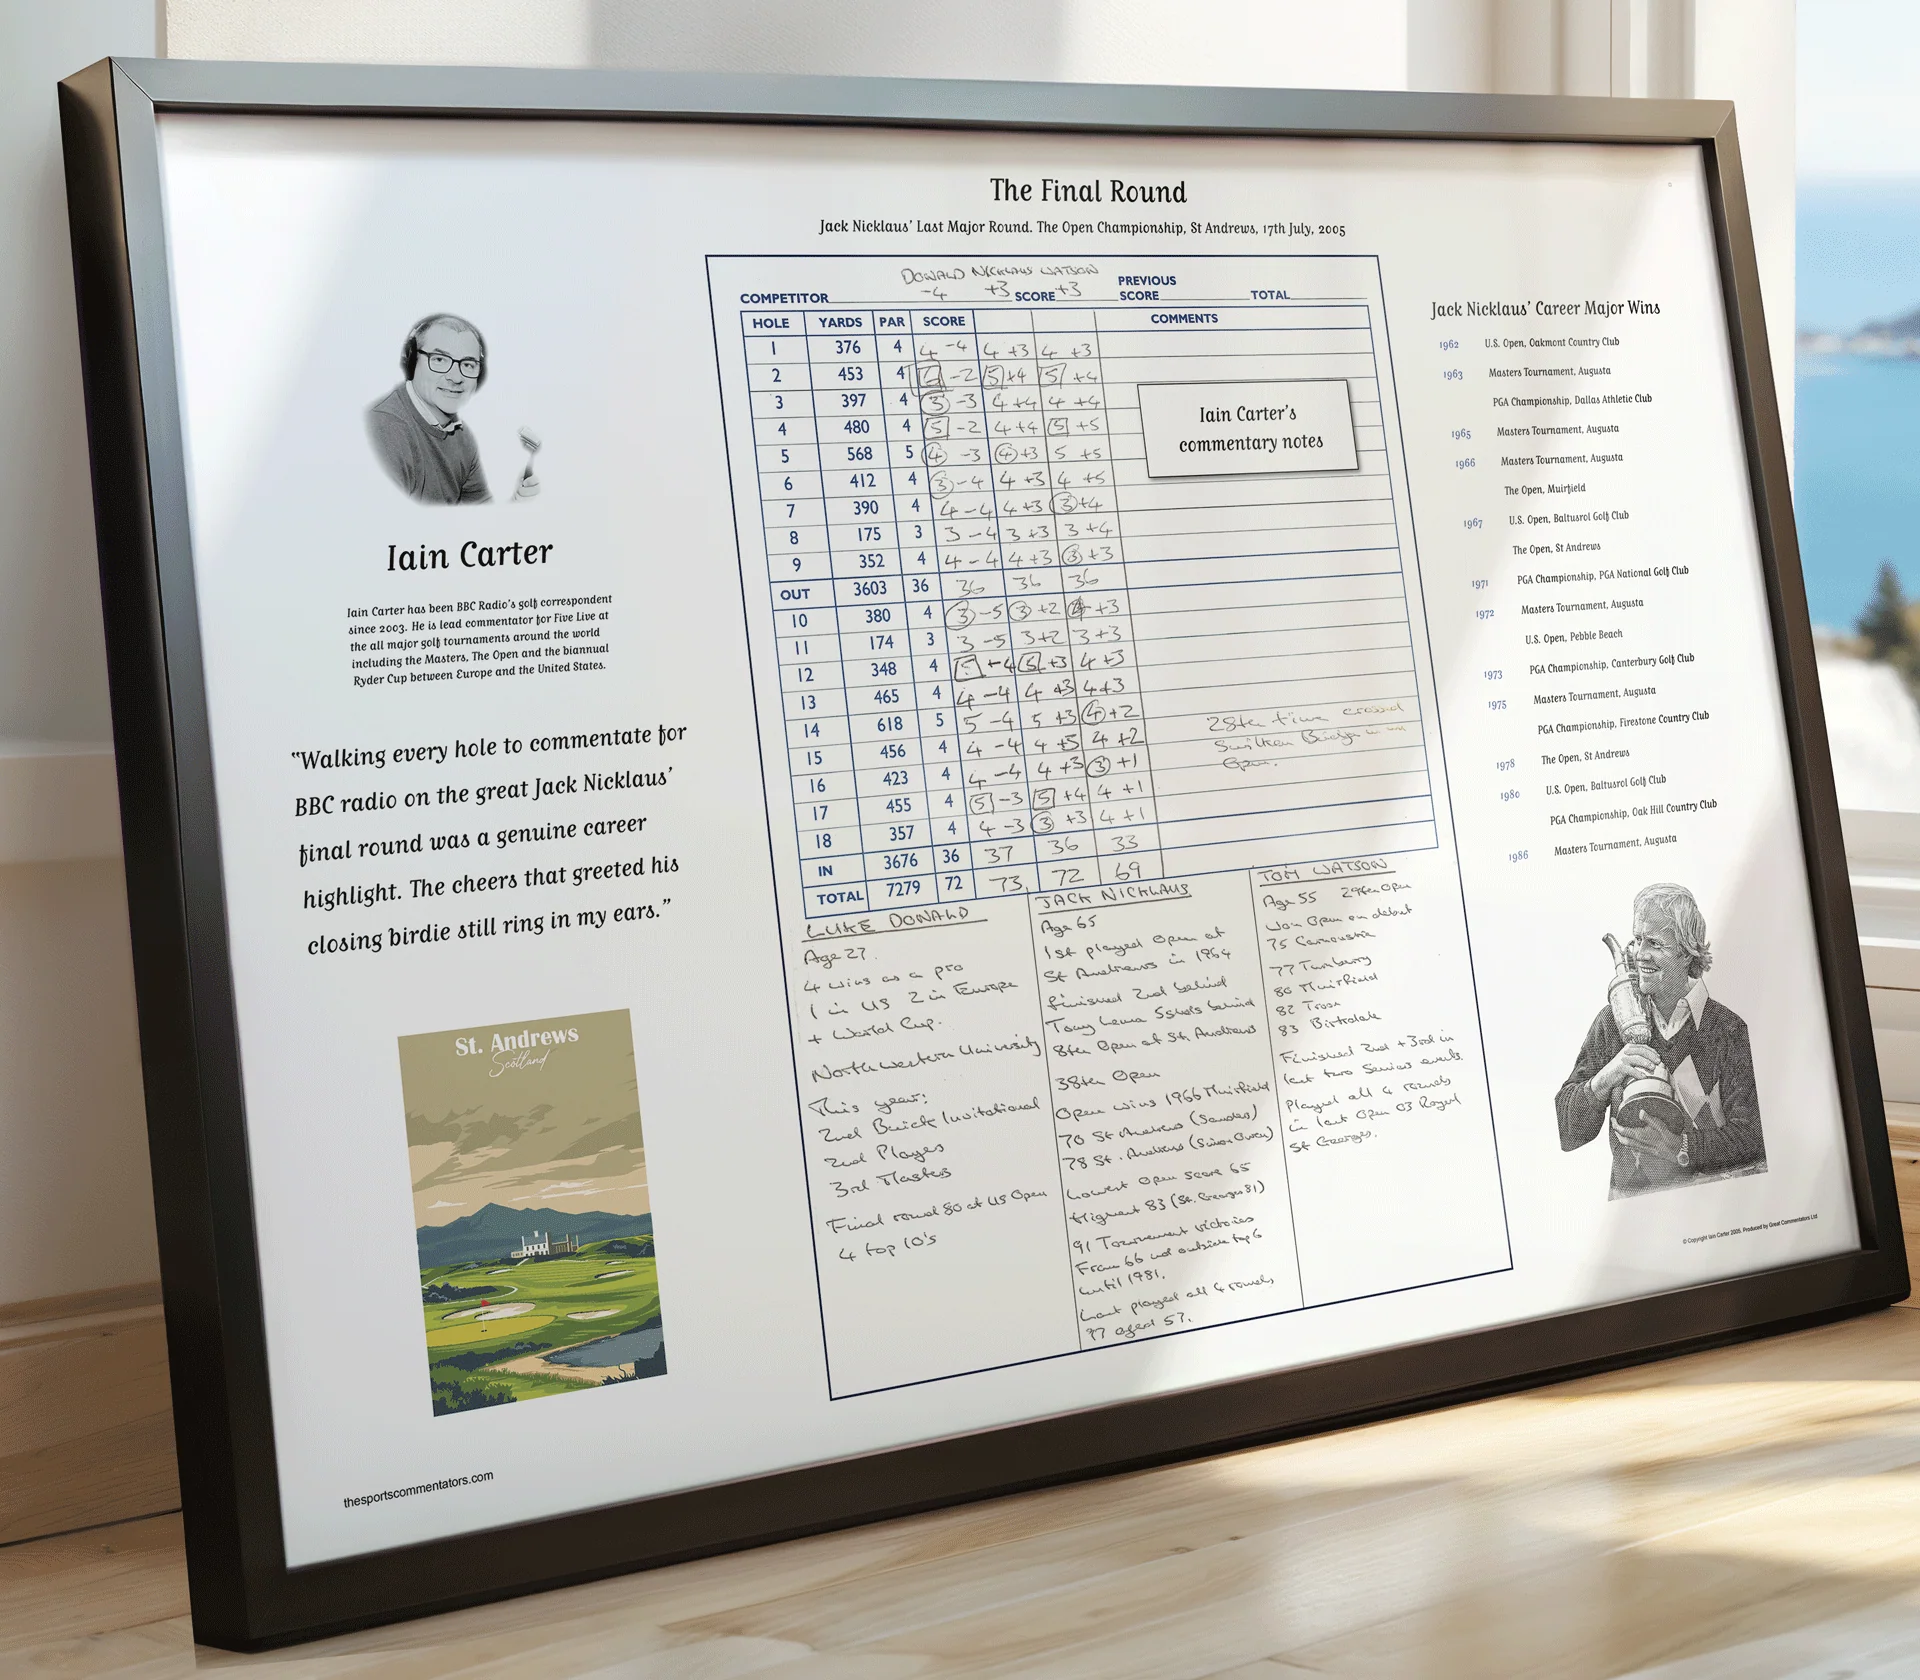 The Final Round
Jack Nicklaus' Last Major Round. The Open Championship, St Andrews, 17th July, 2005
Iain Carter
Iain Carter has been BBC Radio's golf correspondent
since 2003. He is lead commentator for Five Live at
the all major golf tournaments around the world
including the Masters, The Open and the biannual
Ryder Cup between Europe and the United States.
"Walking every hole to commentate for
BBC radio on the great Jack Nicklaus'
final round was a genuine career
highlight. The cheers that greeted his
closing birdie still ring in my ears."
St. Andrews
Scotland
thesportscommentators.com
DONALD NICKLAUS WATSON
-4 +3 +3
COMPETITOR SCORE PREVIOUS SCORE TOTAL
HOLE YARDS PAR SCORE COMMENTS
1 376 4 4 -4 4 +3 4 +3
2 453 4 -2 5 +4 5 +4
3 397 4 3 -3 4 +4 4 +4
4 480 4 5 -2 4 +4 5 +5
5 568 5 4 -3 4 +3 5 +5
6 412 4 3 -4 4 +3 4 +5
7 390 4 4 -4 4 +3 3 +4
8 175 3 3 -4 3 +3 3 +4
9 352 4 4 -4 4 +3 3 +3
OUT 3603 36 36 36 36
10 380 4 3 -5 3 +2 4 +3
11 174 3 3 -5 3 +2 3 +3
12 348 4 5 +4 5 +3 4 +3
13 465 4 4 -4 4 +3 4 +3
14 618 5 5 -4 5 +3 4 +2
15 456 4 4 -4 4 +3 4 +2
16 423 4 4 -4 4 +3 3 +1
17 455 4 5 -3 5 +4 4 +1
18 357 4 4 -3 3 +3 4 +1
IN 3676 36 37 36 33
TOTAL 7279 72 73 72 69
Iain Carter's
commentary notes
28th time crossed
Swilken Bridge in an
Open.
LUKE DONALD
Age 27.
4 wins as a pro
1 in US 2 in Europe
+ World Cup.
Northwestern University
This year:
2nd Buick Invitational
2nd Players
3rd Masters
Final round 80 at US Open
4 top 10's
JACK NICKLAUS
Age 65
1st played Open at
St Andrews in 1964
finished 2nd behind
Tony Lema 5 shots behind
8th Open at St. Andrews
38th Open
Open wins 1966 Muirfield
70 St Andrews (Sanders)
78 St. Andrews (Simon Owen)
Lowest Open score 65
Highest 83 (St. Georges 81)
91 Tournament victories
From 66 not outside top 6
until 1981.
Last played all 4 rounds,
97 aged 57.
TOM WATSON
Age 55 29th Open
Won Open on debut
75 Carnoustie
77 Turnberry
80 Muirfield
82 Troon
83 Birkdale
Finished 2nd + 3rd in
last two Senior events.
Played all 4 rounds
in last Open 03 Royal
St Georges.
Jack Nicklaus' Career Major Wins
1962 U.S. Open, Oakmont Country Club
1963 Masters Tournament, Augusta
PGA Championship, Dallas Athletic Club
1965 Masters Tournament, Augusta
1966 Masters Tournament, Augusta
The Open, Muirfield
1967 U.S. Open, Baltusrol Golf Club
The Open, St Andrews
1971 PGA Championship, PGA National Golf Club
1972 Masters Tournament, Augusta
U.S. Open, Pebble Beach
1973 PGA Championship, Canterbury Golf Club
1975 Masters Tournament, Augusta
PGA Championship, Firestone Country Club
1978 The Open, St Andrews
1980 U.S. Open, Baltusrol Golf Club
PGA Championship, Oak Hill Country Club
1986 Masters Tournament, Augusta
© Copyright Iain Carter 2005. Produced by Great Commentators Ltd